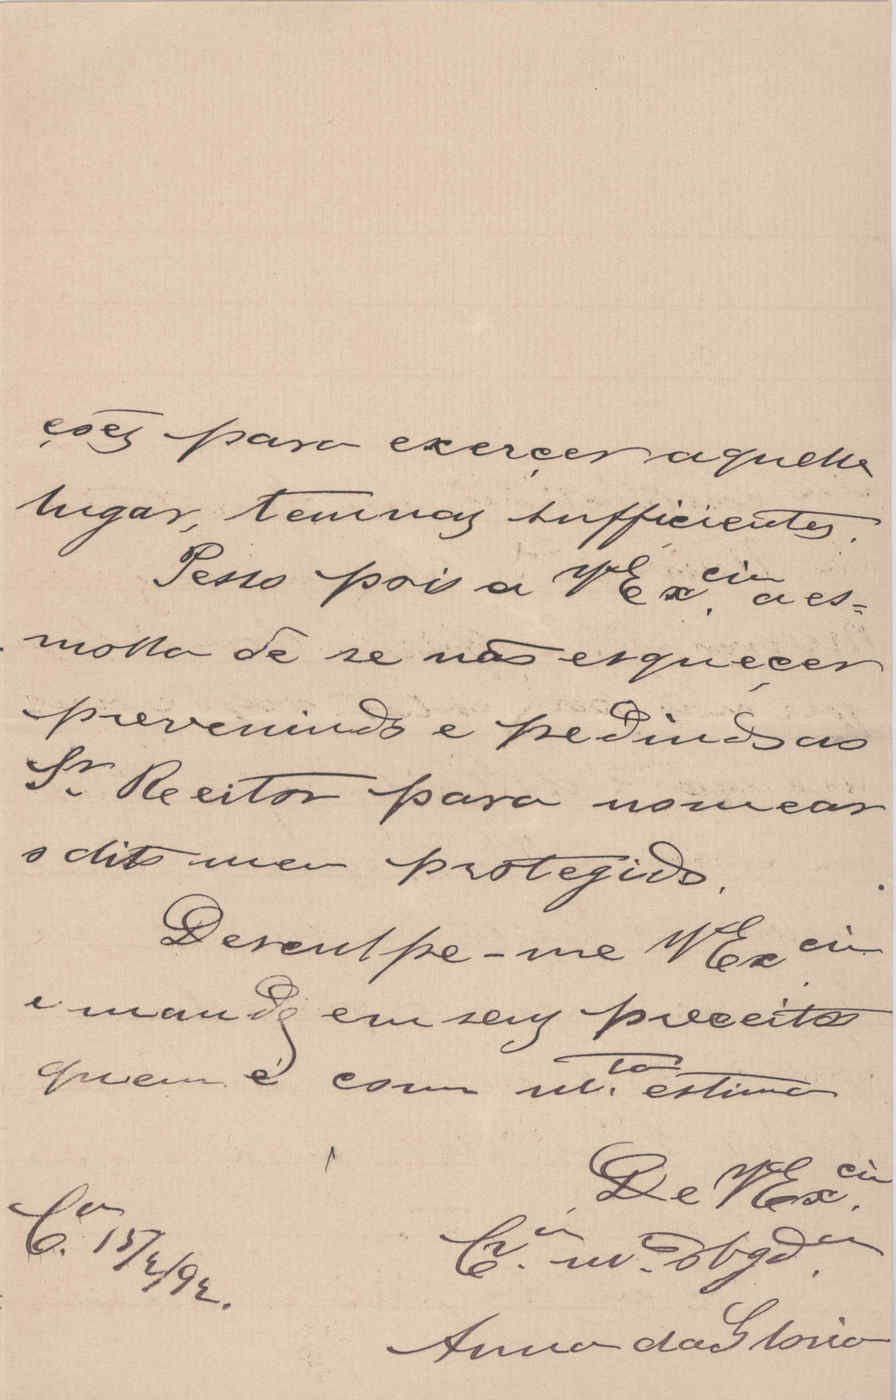 ções para exerçer aquelle
lugar, temnas sufficientes.
Pesso pois a VExcia. a es=
molla de se não esqueçer
prevenindo e pedindo ao
Sr. Reeitor para nomear
o dito meu protegido.
Desculpe-me VExcia
e mande em seus preceitos
quem é com mta. estima
De VExcia.
Cra. mo. obgda.
Ca. 15/2/92.
Anna da Gloria